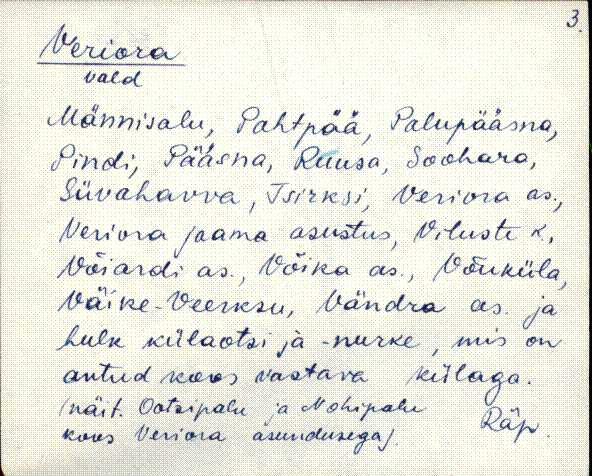 3.
Veriora
vald
Männisalu, Pahtpää, Palupääsna,
Pindi, Pääsna, Ruusa, Soohara,
Süvahavva, Tsirksi, Veriora as.,
Veriora jaama asustus, Viluste k.,
Võiardi as., Võika as., Võuküla,
Väike-Veerksu, Vändra as. ja
hulk külaotsi ja -nurke, mis on
antud koos vastava külaga.
(näit. Ootsipalu ja Nohipalu
koos Veriora asundusega).
Räp.